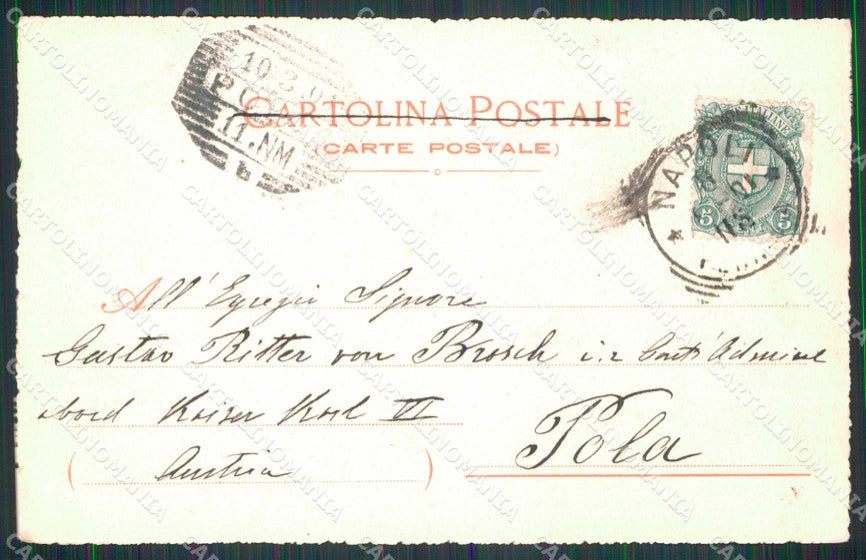 10.3.0
PO
11.NM
b
CARTOLINA POSTALE
(CARTE POSTALE)
NAPOLI
5 5
All' Egregio Signore
Gustav Ritter von Brosch i. r. Contr'Admiral
abord Kaiser Karl VI
Pola
Austria
CARTOLINOMANIA